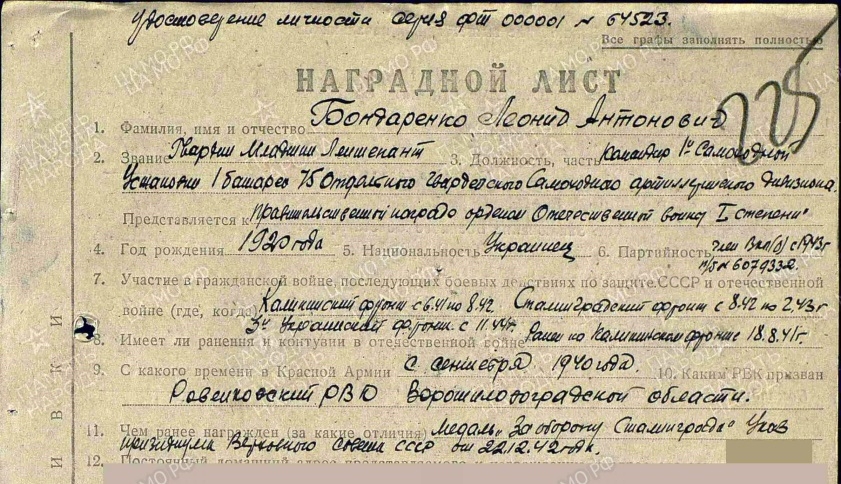 Удостоверение личности серия ФТ 000001 № 64523.
Все графы заполнять полностью
225
НАГРАДНОЙ ЛИСТ
1. Фамилия, имя и отчество Бондаренко Леонид Антонович
2. Звание Гвардии Младший Лейтенант 3. Должность, часть Командир 1й Самоходной
Установки 1 батареи 75 Отдельного Гвардейского Самоходно артиллерийского дивизиона.
Представляется к правительственной награде орденом Отечественной войны I степени"
4. Год рождения 1920 года 5. Национальность Украинец 6. Партийность член ВКП(б) с 1943г
п/б № 6079332.
7. Участие в гражданской войне, последующих боевых действиях по защите СССР и отечественной
войне (где, когда) Калининский фронт с 6.41 по 8.42. Сталинградский фронт с 8.42 по 2.43г
3й Украинский фронт. с 11.44г.
8. Имеет ли ранения и контузии в отечественной войне Ранен на Калининском фронте 18.8.41г.
9. С какого времени в Красной Армии с сентября 1940 года. 10. Каким РВК призван
Ровеньковский РВК Ворошиловградской области.
11. Чем ранее награжден (за какие отличия) Медаль „За оборону Сталинграда" Указ
президиума Верховного совета СССР от 22.12.42 года.
12. Постоянный домашний адрес
И В К И
ПАМЯТЬ НАРОДА
ЦАМО РФ